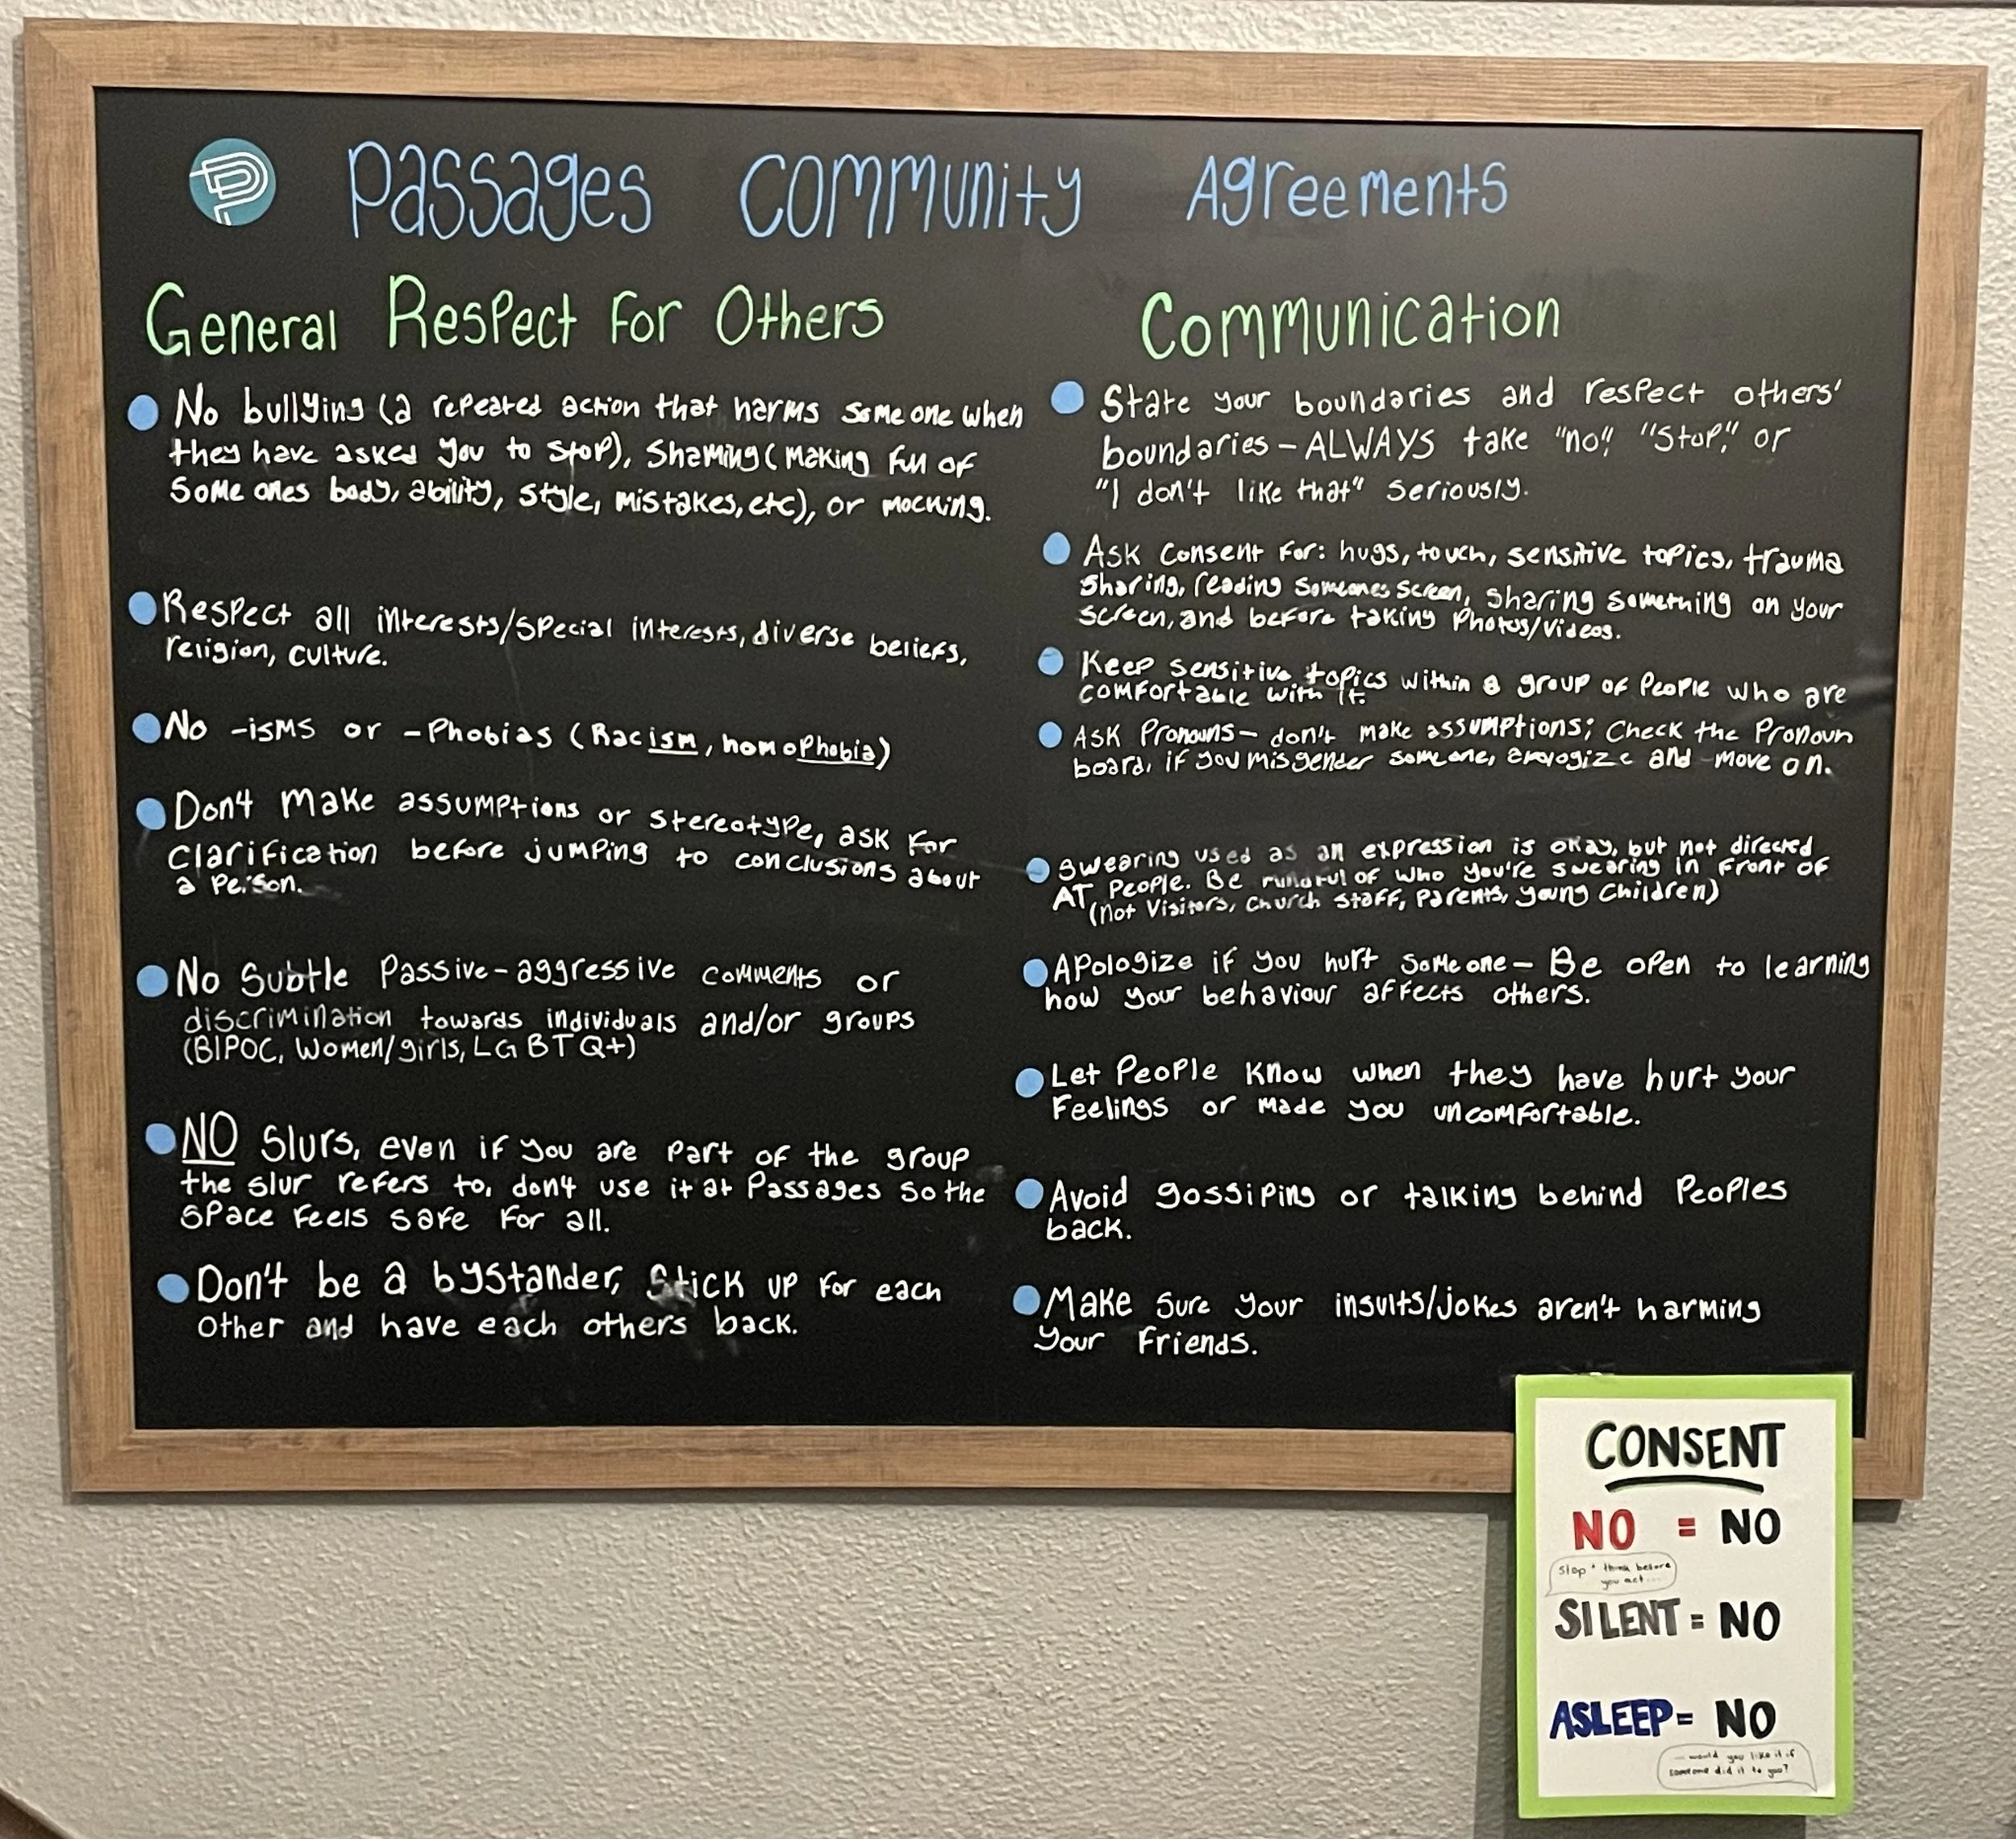 Passages Community Agreements
General Respect For Others
No bullying (a repeated action that harms someone when
they have asked you to stop), Shaming (Making fun of
Some ones body, ability, style, mistakes, etc), or mocking.
Respect all interests/special interests, diverse beliefs,
religion, culture.
No -isms or -Phobias (Racism, homophobia)
Don't Make assumptions or stereotype, ask for
Clarification before jumping to conclusions about
a Person.
No Subtle Passive-aggressive comments or
discrimination towards individuals and/or groups
(BIPOC, Women/girls, LGBTQ+)
NO Slurs, even if you are part of the group
the slur refers to, don't use it at Passages so the
Space feels safe for all.
Don't be a bystander, Stick up for each
other and have each others back.
Communication
State your boundaries and respect others'
boundaries - ALWAYS take "no", "Stop", or
"I don't like that" seriously.
Ask Consent For: hugs, touch, sensitive topics, trauma
Sharing, reading someones screen, sharing something on your
screen, and before taking Photos/Videos.
Keep sensitive topics within a group of People who are
comfortable with it.
Ask Pronouns - don't make assumptions; Check the Pronoun
board, if you misgender someone, apologize and move on.
Swearing used as an expression is okay, but not directed
AT People. Be mindful of who you're swearing in front of
(not Visitors, church staff, Parents, young Children)
Apologize if you hurt someone - Be open to learning
how your behaviour affects others.
Let People Know when they have hurt your
Feelings or made you uncomfortable.
Avoid gossiping or talking behind Peoples
back.
Make sure your insults/jokes aren't harming
your Friends.
CONSENT
NO = NO
Stop + think before
you act...
SILENT = NO
ASLEEP = NO
would you like it if
someone did it to you?